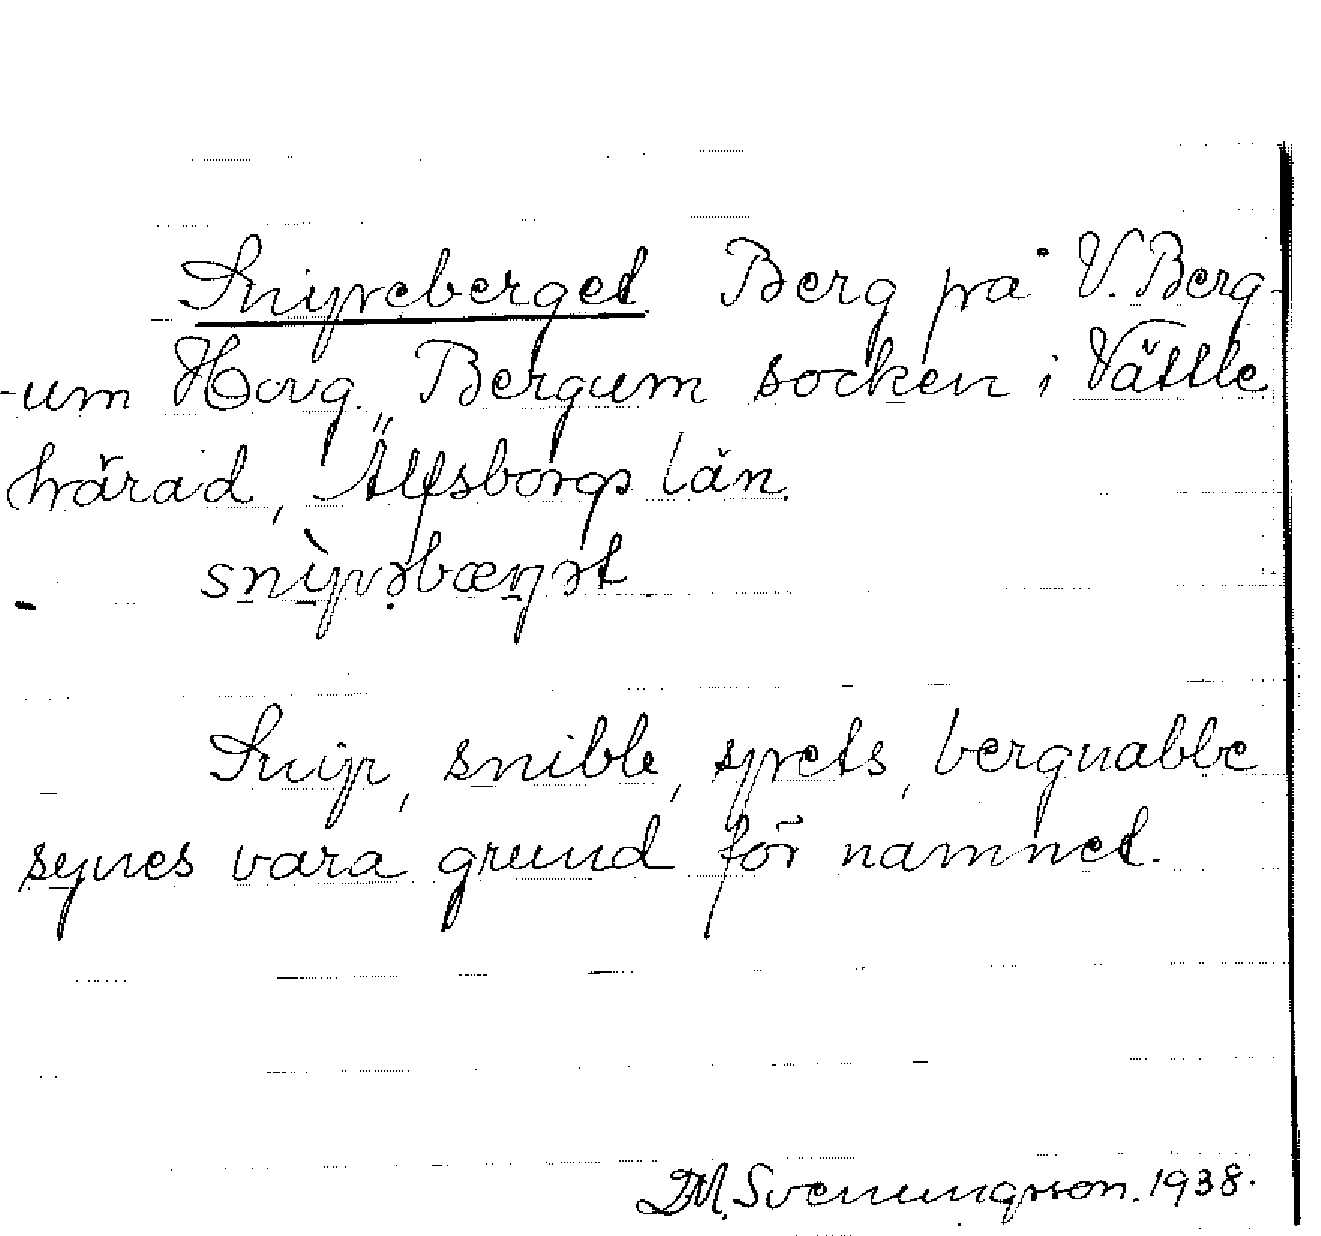 Snipeberget Berg på V. Berg-
-um Hovg. Bergum socken i Vättle
härad, Älfsborgs län.
snìpəbærjət
Snip, snibb, spets, bergnabbe
synes vara grund för namnet.
D.M. Svenungsson. 1938.